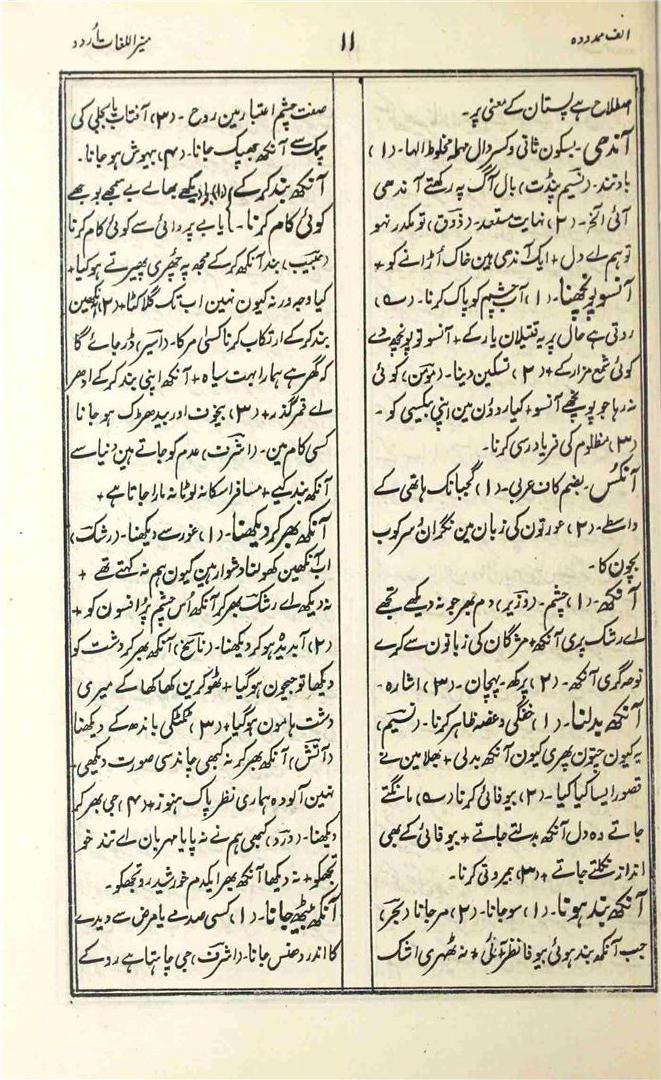 الف ممدودہ
۱۱
اصطلاح ہے پستان کے معنی پر۔
آندھی۔ بسکون ثانی وکسر دال مہملہ مخلوط الہا۔ (۱)
بادتند۔ (نسیم پنڈت) بال آگ پہ رکھتے آندھی
آئی الخ۔ (۲) نہایت مستعد۔ (ذوق) تو مکدر نہو
تو ہم اے دل + ایک آندھی ہین خاک اُڑانے کو +
آنسو پونچھنا۔ (۱) آب چشم کو پاک کرنا۔
روتی ہے حال پر یہ قتیلان یار کے + آنسو تو پونچھ دے
کوئی شمع مزار کے + (۲) تسکین دینا۔ (مومن) کوئی
نہ رہا جو پونچھے آنسو + کیا روؤن مین اپنی بیکسی کو۔
(۳) مظلوم کی فریاد رسی کرنا۔
آنکس۔ بضم کاف عربی۔ (۱) گجبانک ہاتھی کے
واسطے۔ (۲) عورتون کی زبان مین نگران و سرکوب
بچون کا۔
آنکھ۔ (۱) چشم۔ (وزیر) دم بھر جو نہ دیکھے تجھے
اے رشک پری آنکھ + مژگان کی زبانون سے کرے
نوحہ گری آنکھ۔ (۲) پرکھ۔ پہچان۔ (۳) اشارہ۔
آنکھ بدلنا۔ (۱) خفگی وغصہ ظاہر کرنا۔ (نسیم)
یہ کیون جتون پھری کیون آنکھ بدلی + بھلا مین نے
قصور ایسا کیا کیا۔ (۲) بیوفائی کرنا مانگتے
جاتے وہ دل آنکھ بدلتے جاتے + بیوفائی کے بھی
انداز نکلتے جاتے + (۳) بیمروتی کرنا۔
آنکھ بند ہونا۔ (۱) سوجانا۔ (۲) مرجانا (بحر)
جب آنکھ بند ہوئی بیوفا نظر آئی + نہ ٹھہری اشک
صفت چشم اعتبار مین روح۔ (۳) آفتاب یا بجلی کی
چمک سے آنکھ جھپک جانا۔ (۴) بیہوش ہوجانا۔
آنکھ بند کرکے (۱) بے دیکھے بھالے بے سمجھے بوجھے
کوئی کام کرنا۔ یا بے پروائی سے کوئی کام کرنا
بند آنکھ کرکے مجھ پہ چھری پھیرتے ہو کیا +
کیا وجہ ور نہ کیون نہین اب تک گلا کٹا + (۲) آنکھین
بند کرکے ارتکاب کرنا کسی امر کا۔ (اسیر) ڈر جائے گا
کہ گھر ہے ہمارا بہت سیاہ + آنکھ اپنی بند کرکے ادھر
اے قمر گذر + (۳) بیخوف اور بیدھڑک ہوجانا
کسی کام مین۔ (اشرف) عدم کو جاتے ہین دنیا سے
آنکھ بند کیے + مسافر اسکا نہ لوٹا نہ مارا جاتا ہے +
آنکھ بھر کر دیکھنا۔ (۱) غور سے دیکھنا۔ (رشک)
اب آنکھین کھولنا دشوار ہین کیون ہم نہ کہتے تھے +
نہ دیکھ اے رشک بھر کر آنکھ اُس چشم پُر افسون کو +
(۲) آبدیدہ ہوکر دیکھنا۔ (ناسخ) آنکھ بھر کر دشت کو
دیکھا تو جیحون ہو گیا + ٹھوکرین کھا کھا کے میری
دشت ہامون ہو گیا + (۳) ٹکٹکی باندھ کے دیکھنا
(آتش) آنکھ بھر کر نہ کبھی چاند سی صورت دیکھی +
نہین آلودہ ہماری نظر پاک ہنوز + (۴) جی بھر کر
دیکھنا۔ (درد) کبھی ہم نے نہ پایا مہربان اے تند خو
تجھکو + نہ دیکھا آنکھ بھر ایکدم خورشید رو تجھکو۔
آنکھ بیٹھ جانا۔ (۱) کسی صدمے یا مرض سے دیدے
کا اندر دھنس جانا۔ (اشرف) جی چاہتا ہے رو کے